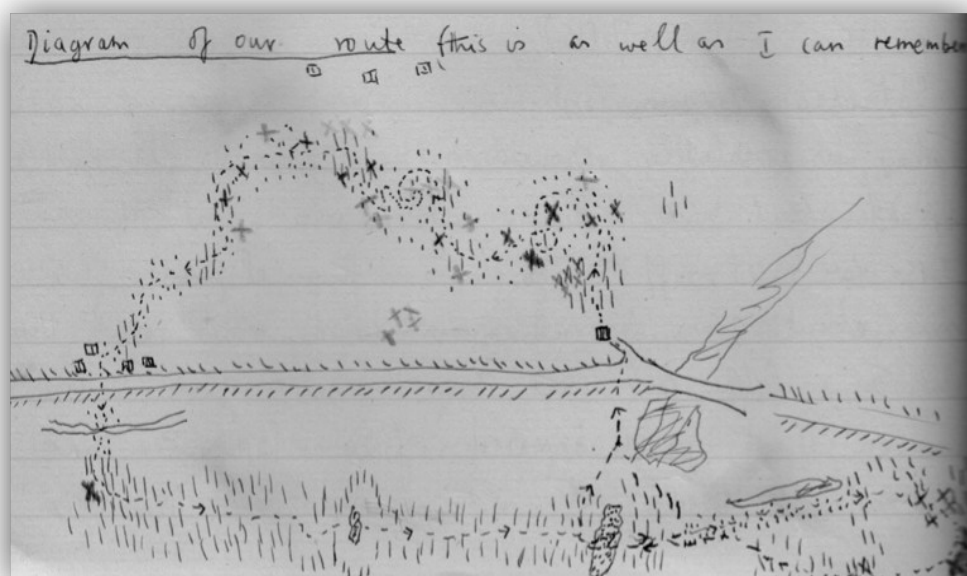 Diagram of our route (this is as well as I can remember